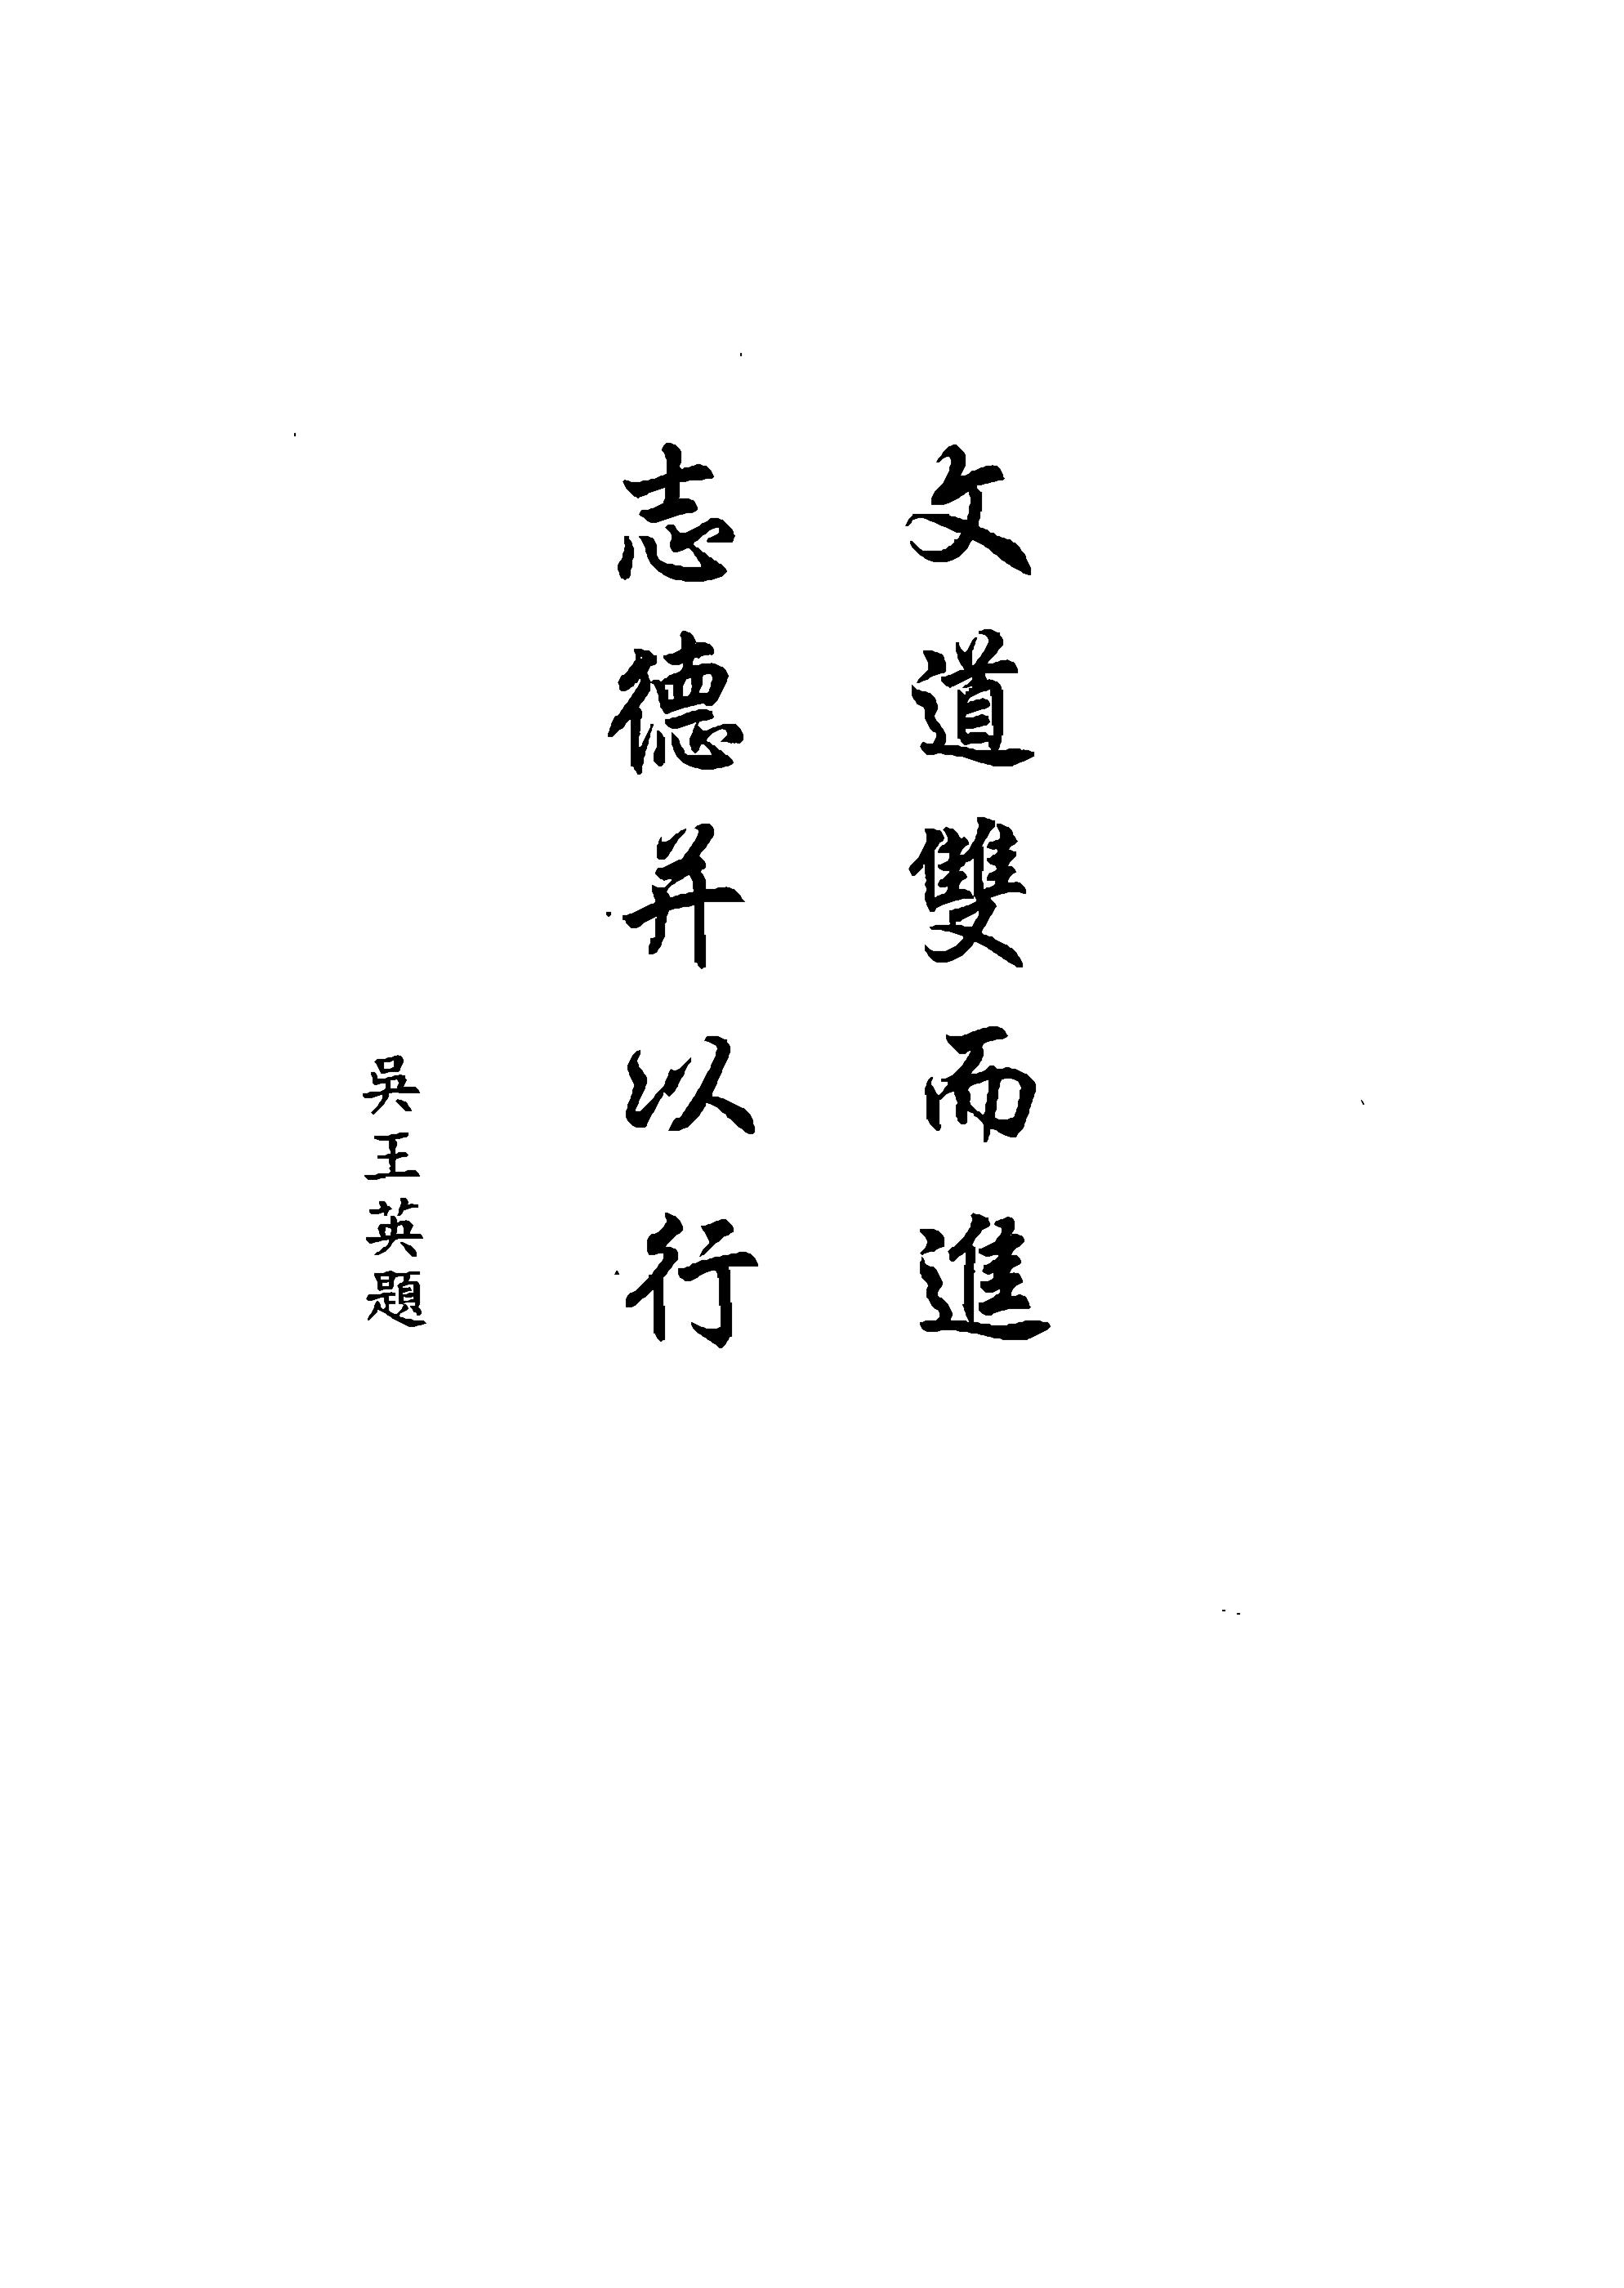 文道雙而進
志德并以行
吳王英題